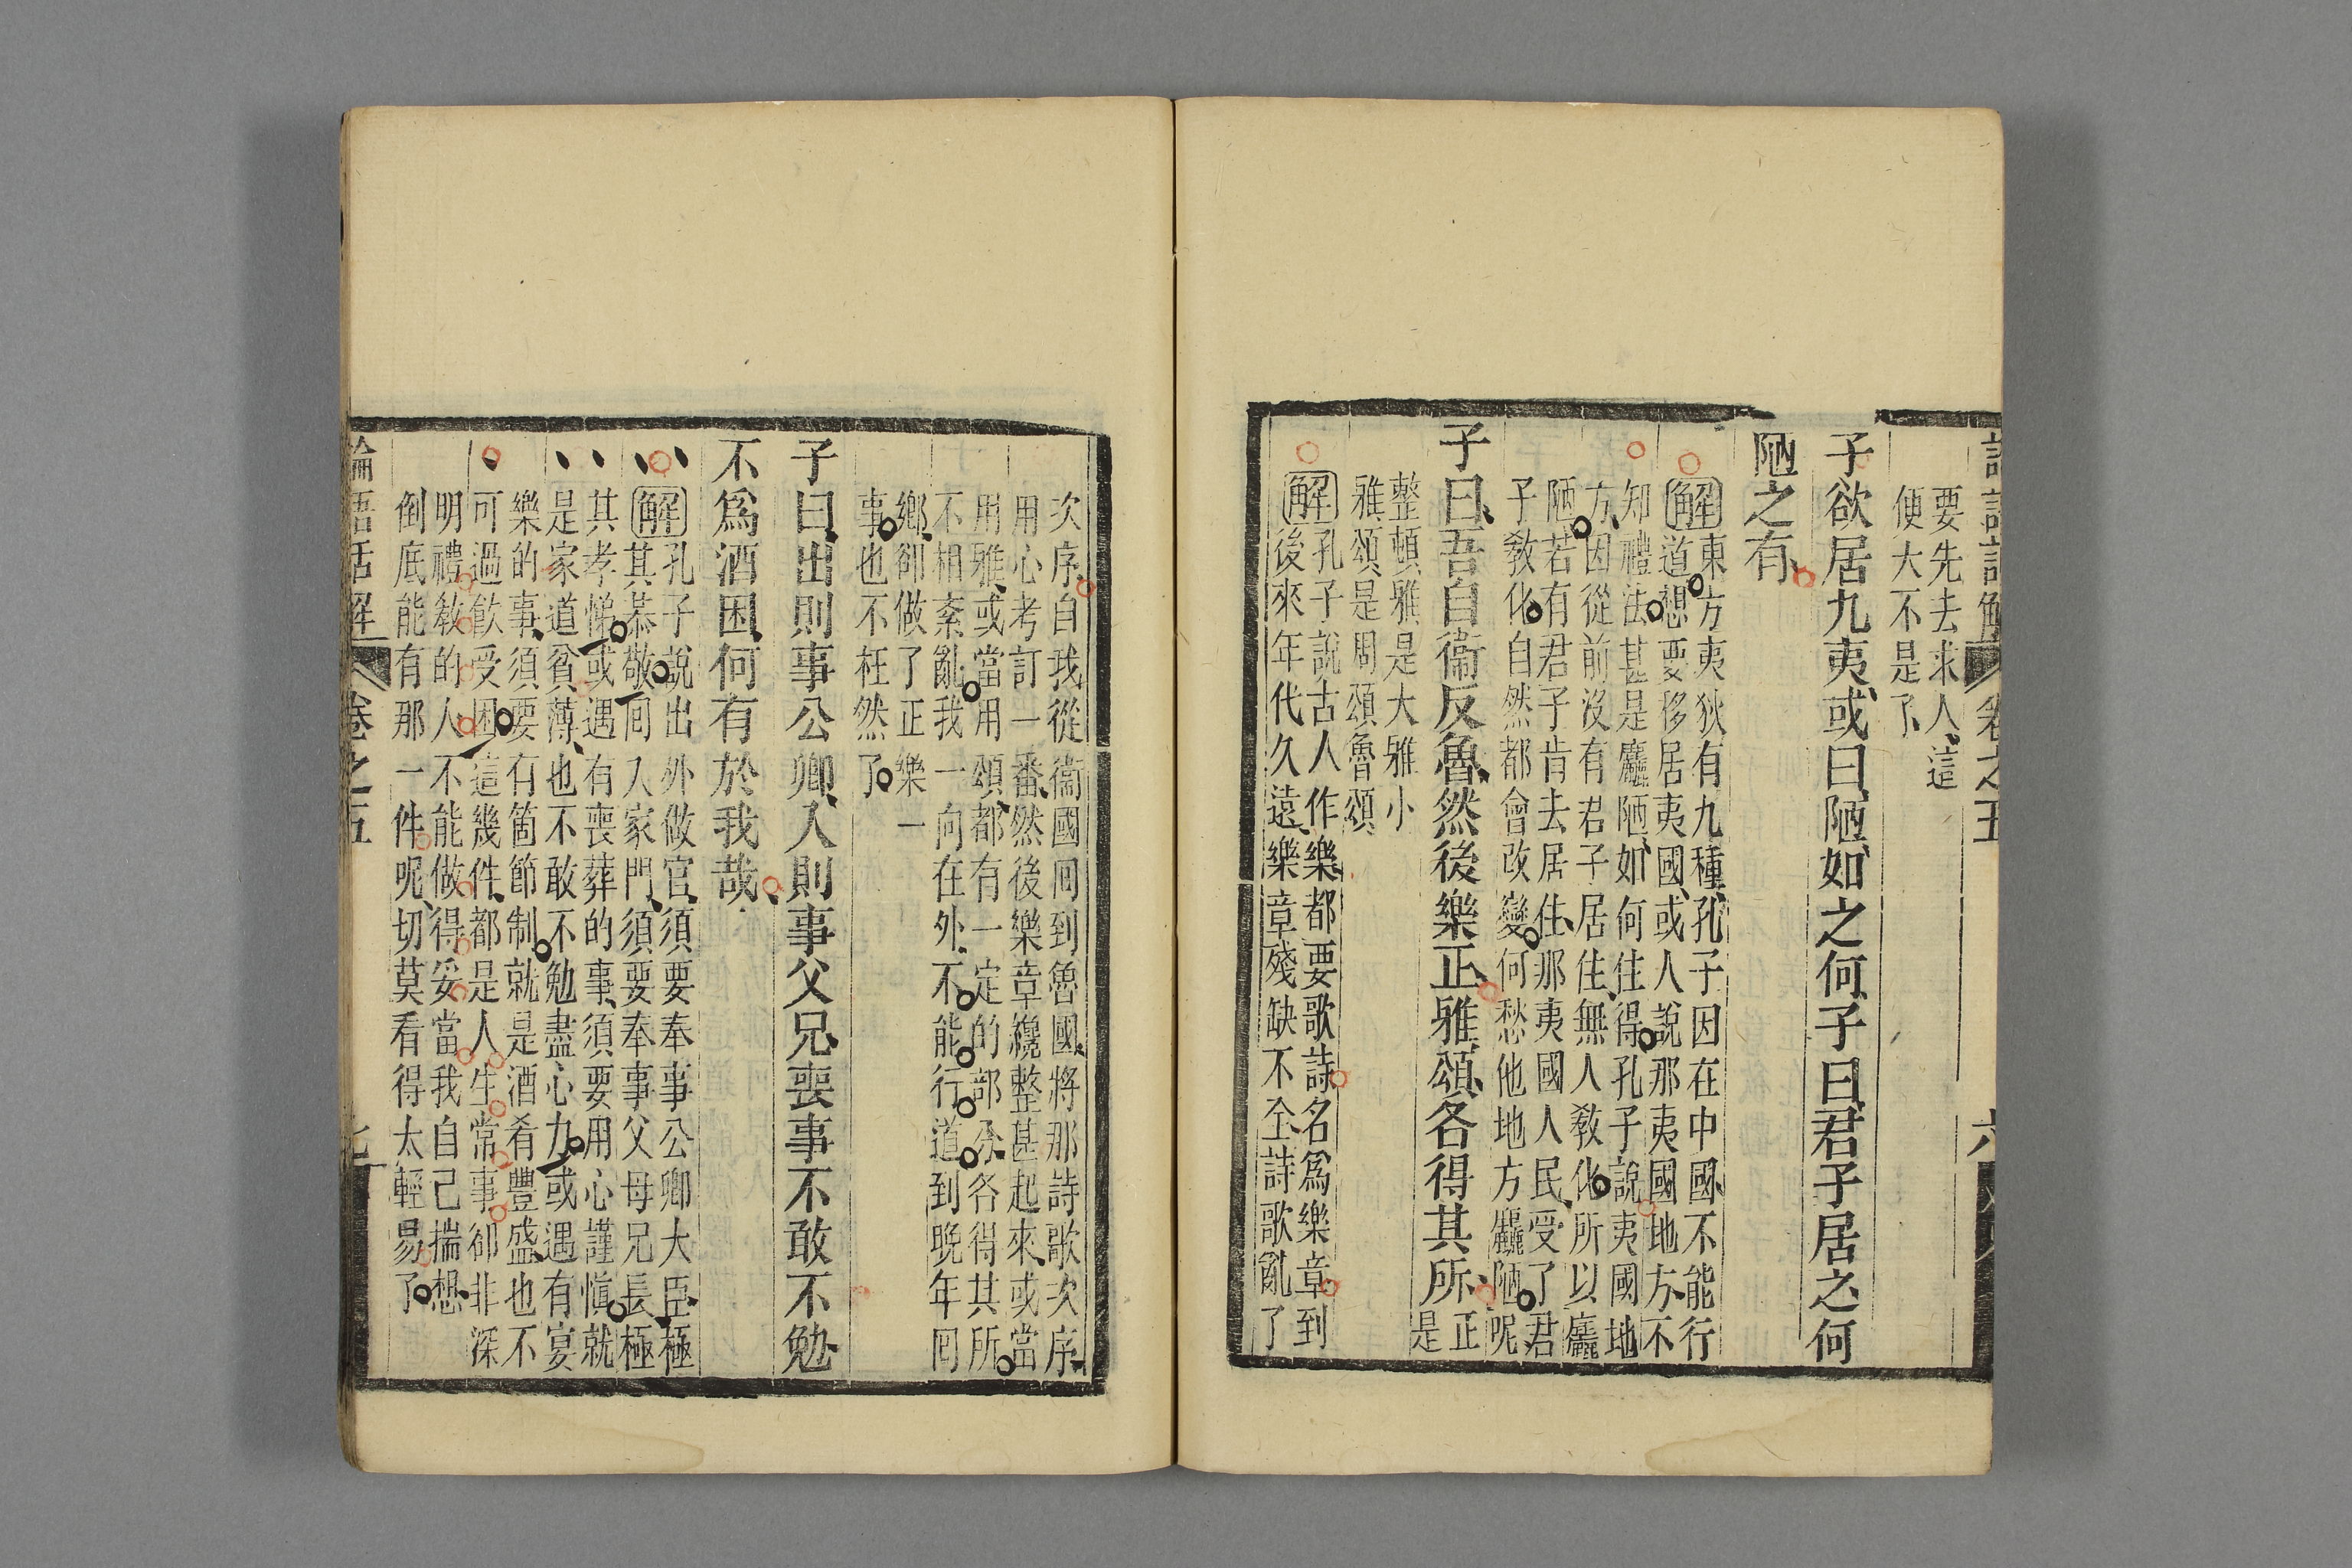 要先去求人、這
便大不是了、
子欲居九夷、或曰、陋、如之何、子曰、君子居之、何
陋之有、
解東方夷狄有九種、孔子因在中國、不能行
道、想要移居夷國、或人說那夷國地方、不
知禮法、甚是麤陋、如何住得、孔子說夷國地
方、因從前沒有君子居住、無人敎化、所以麤
陋、若有君子肯去居住、那夷國人民、受了君
子敎化、自然都會改變、何愁他地方麤陋呢
子曰、吾自衞反魯、然後樂正、雅頌、各得其所、正
是
整頓雅是大雅小
雅頌、是周頌魯頌
解孔子說古人作樂、都要歌詩、名爲樂章、到
後來年代久遠、樂章殘缺不全、詩歌亂了
次序、自我從衞國囘到魯國、將那詩歌次序、
用心考訂一番、然後樂章纔整甚起來、或當
用雅、或當用頌、都有一定的部分、各得其所、
不相紊亂、我一向在外、不能行道、到晚年囘
鄉、卻做了正樂一
事、也不枉然了、
子曰、出則事公卿、入則事父兄、喪事不敢不勉、
不爲酒困、何有於我哉、
解孔子說出外做官、須要奉事公卿大臣、極
其恭敬、囘入家門、須要奉事父母兄長、極
其孝悌、或遇有喪葬的事、須要用心謹愼、就
是家道貧薄、也不敢不勉盡心力、或遇有宴
樂的事、須要有箇節制、就是酒肴豐盛、也不
可過飮受困、這幾件、都是人生常事、卻非深
明禮敎的人、不能做得妥當、我自己揣想、
倒底能有那一件呢、切莫看得太輕易了、
論語話解 卷之五 七